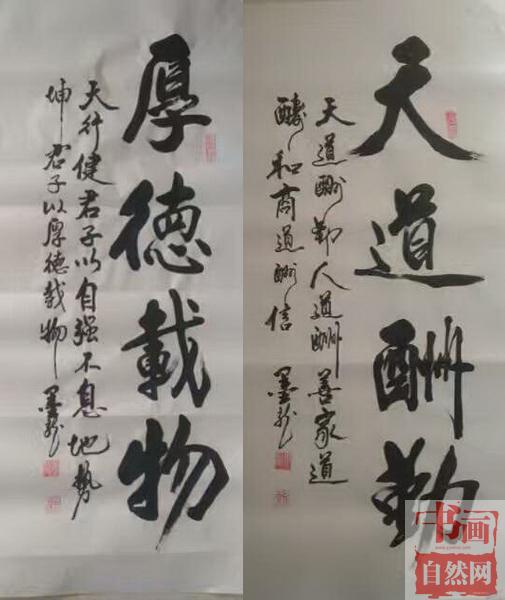 天道酬勤
天道酬勤人道酬善家道
醻和商道酬信 墨龙
厚德載物
天行健君子以自强不息地勢
坤君子以厚德載物 墨龙
书画
自然网